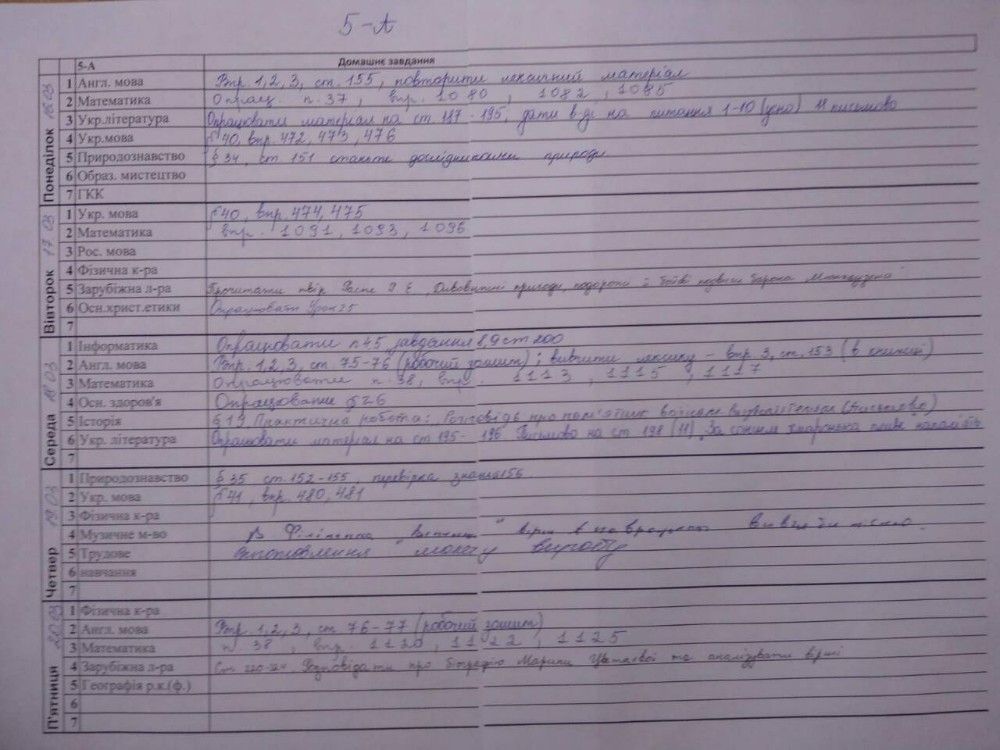 5-А
5-А Домашнє завдання
Понеділок 16.03
1 Англ. мова Впр. 1,2,3, ст. 155, повторити лексичний матеріал
2 Математика Опрац. п.37, впр. 1080, 1082, 1085
3 Укр.література Опрацювати матеріал на ст. 195, дати в-ді на питання 1-10 (усно) 11 письмово
4 Укр.мова §40, впр. 472, 473, 476
5 Природознавство §34, ст. 151 станьте дослідниками природи
6 Образ. мистецтво
7 ГКК
Вівторок 17.03
1 Укр. мова §40, впр. 474, 475
2 Математика впр. 1091, 1093, 1096
3 Рос. мова
4 Фізична к-ра
5 Зарубіжна л-ра Прочитати твір Распе Р. Е. „Дивовижні пригоди, подорожі й бойові подвиги барона Мюнхаузена"
6 Осн.христ.етики Опрацювати Урок 25
7
Середа 18.03
1 Інформатика Опрацювати п45, завдання 8,9 ст 200
2 Англ. мова Впр. 1,2,3, ст. 75-76 (робочий зошит); вивчити лексику - впр. 3, ст. 153 (в книжці)
3 Математика Опрацювати п.38, впр. 1113, 1115, 1117
4 Осн. здоров'я Опрацювати §26
5 Історія §19 Практична робота: Розповідь про пам'ятник воїнам-визволителям (письмово)
6 Укр. література Опрацювати матеріал на ст 195-196 Письмово на ст 198 (11)
7
Четвер 19.03
1 Природознавство §35 ст. 152-155, перевірка знань 156
2 Укр. мова §41, впр. 480, 481
3 Фізична к-ра
4 Музичне м-во Вивчити пісню.
5 Трудове Виготовлення макету виробу
6 навчання
7
П'ятниця 20.03
1 Фізична к-ра
2 Англ. мова Впр. 1,2,3, ст. 76-77 (робочий зошит)
3 Математика п. 38, впр. 1120, 1122, 1125
4 Зарубіжна л-ра Розповідати про біографію Марини Цвєтаєвої та аналізувати вірші
5 Географія р.к.(ф.)
6
7